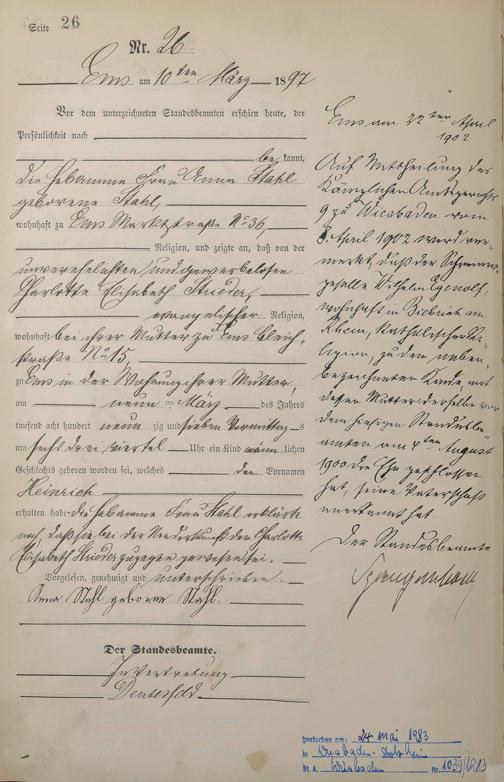 Seite 26
Nr. 26
Ems am 10ten März 1897
Vor dem unterzeichneten Standesbeamten erschien heute, der
Persönlichkeit nach
bekannt,
die Hebamme Frau Anna Stahl
geborene Stahl,
wohnhaft zu Ems Marktstraße No 36,
Religion, und zeigte an, daß von der
unverehelichten und gewerbelosen
Charlotte Elisabeth Strieder,
evangelischer Religion,
wohnhaft bei ihrer Mutter zu Ems Bleich-
straße No 15,
zu Ems in der Wohnung ihrer Mutter,
am neun ten März des Jahres
tausend acht hundert neunzig und sieben Vormittags
um sechs drei viertel Uhr ein Kind männlichen
Geschlechts geboren worden sei, welches den Vornamen
Heinrich
erhalten habe. die Hebamme Frau Stahl erklärte
noch, daß sie bei der Niederkunft der Charlotte
Elisabeth Strieder zugegen gewesen sei.
Vorgelesen, genehmigt und unterschrieben.
Anna Stahl geborne Stahl.
Der Standesbeamte.
In Vertretung
Ems am 22ten April
1902
Auf Mittheilung des
Königlichen Amtsgerichts
9 zu Wiesbaden vom
8. April 1902 wird ver-
merkt, daß der
geselle Wilhelm
wohnhaft in Biebrich am
Rhein, katholischer Re-
ligion, zu dem neben-
bezeichneten Kinde mit
dessen Mutter derselbe vor
dem hiesigen Standesbe-
amten am ten August
1900 die Ehe geschlossen
hat, seine Vaterschaft
anerkannt hat.
Der Standesbeamte
gestorben am: 24. Mai 1983
in Wiesbaden-Dotzheim
St. A. Wiesbaden Nr. 1039/1983